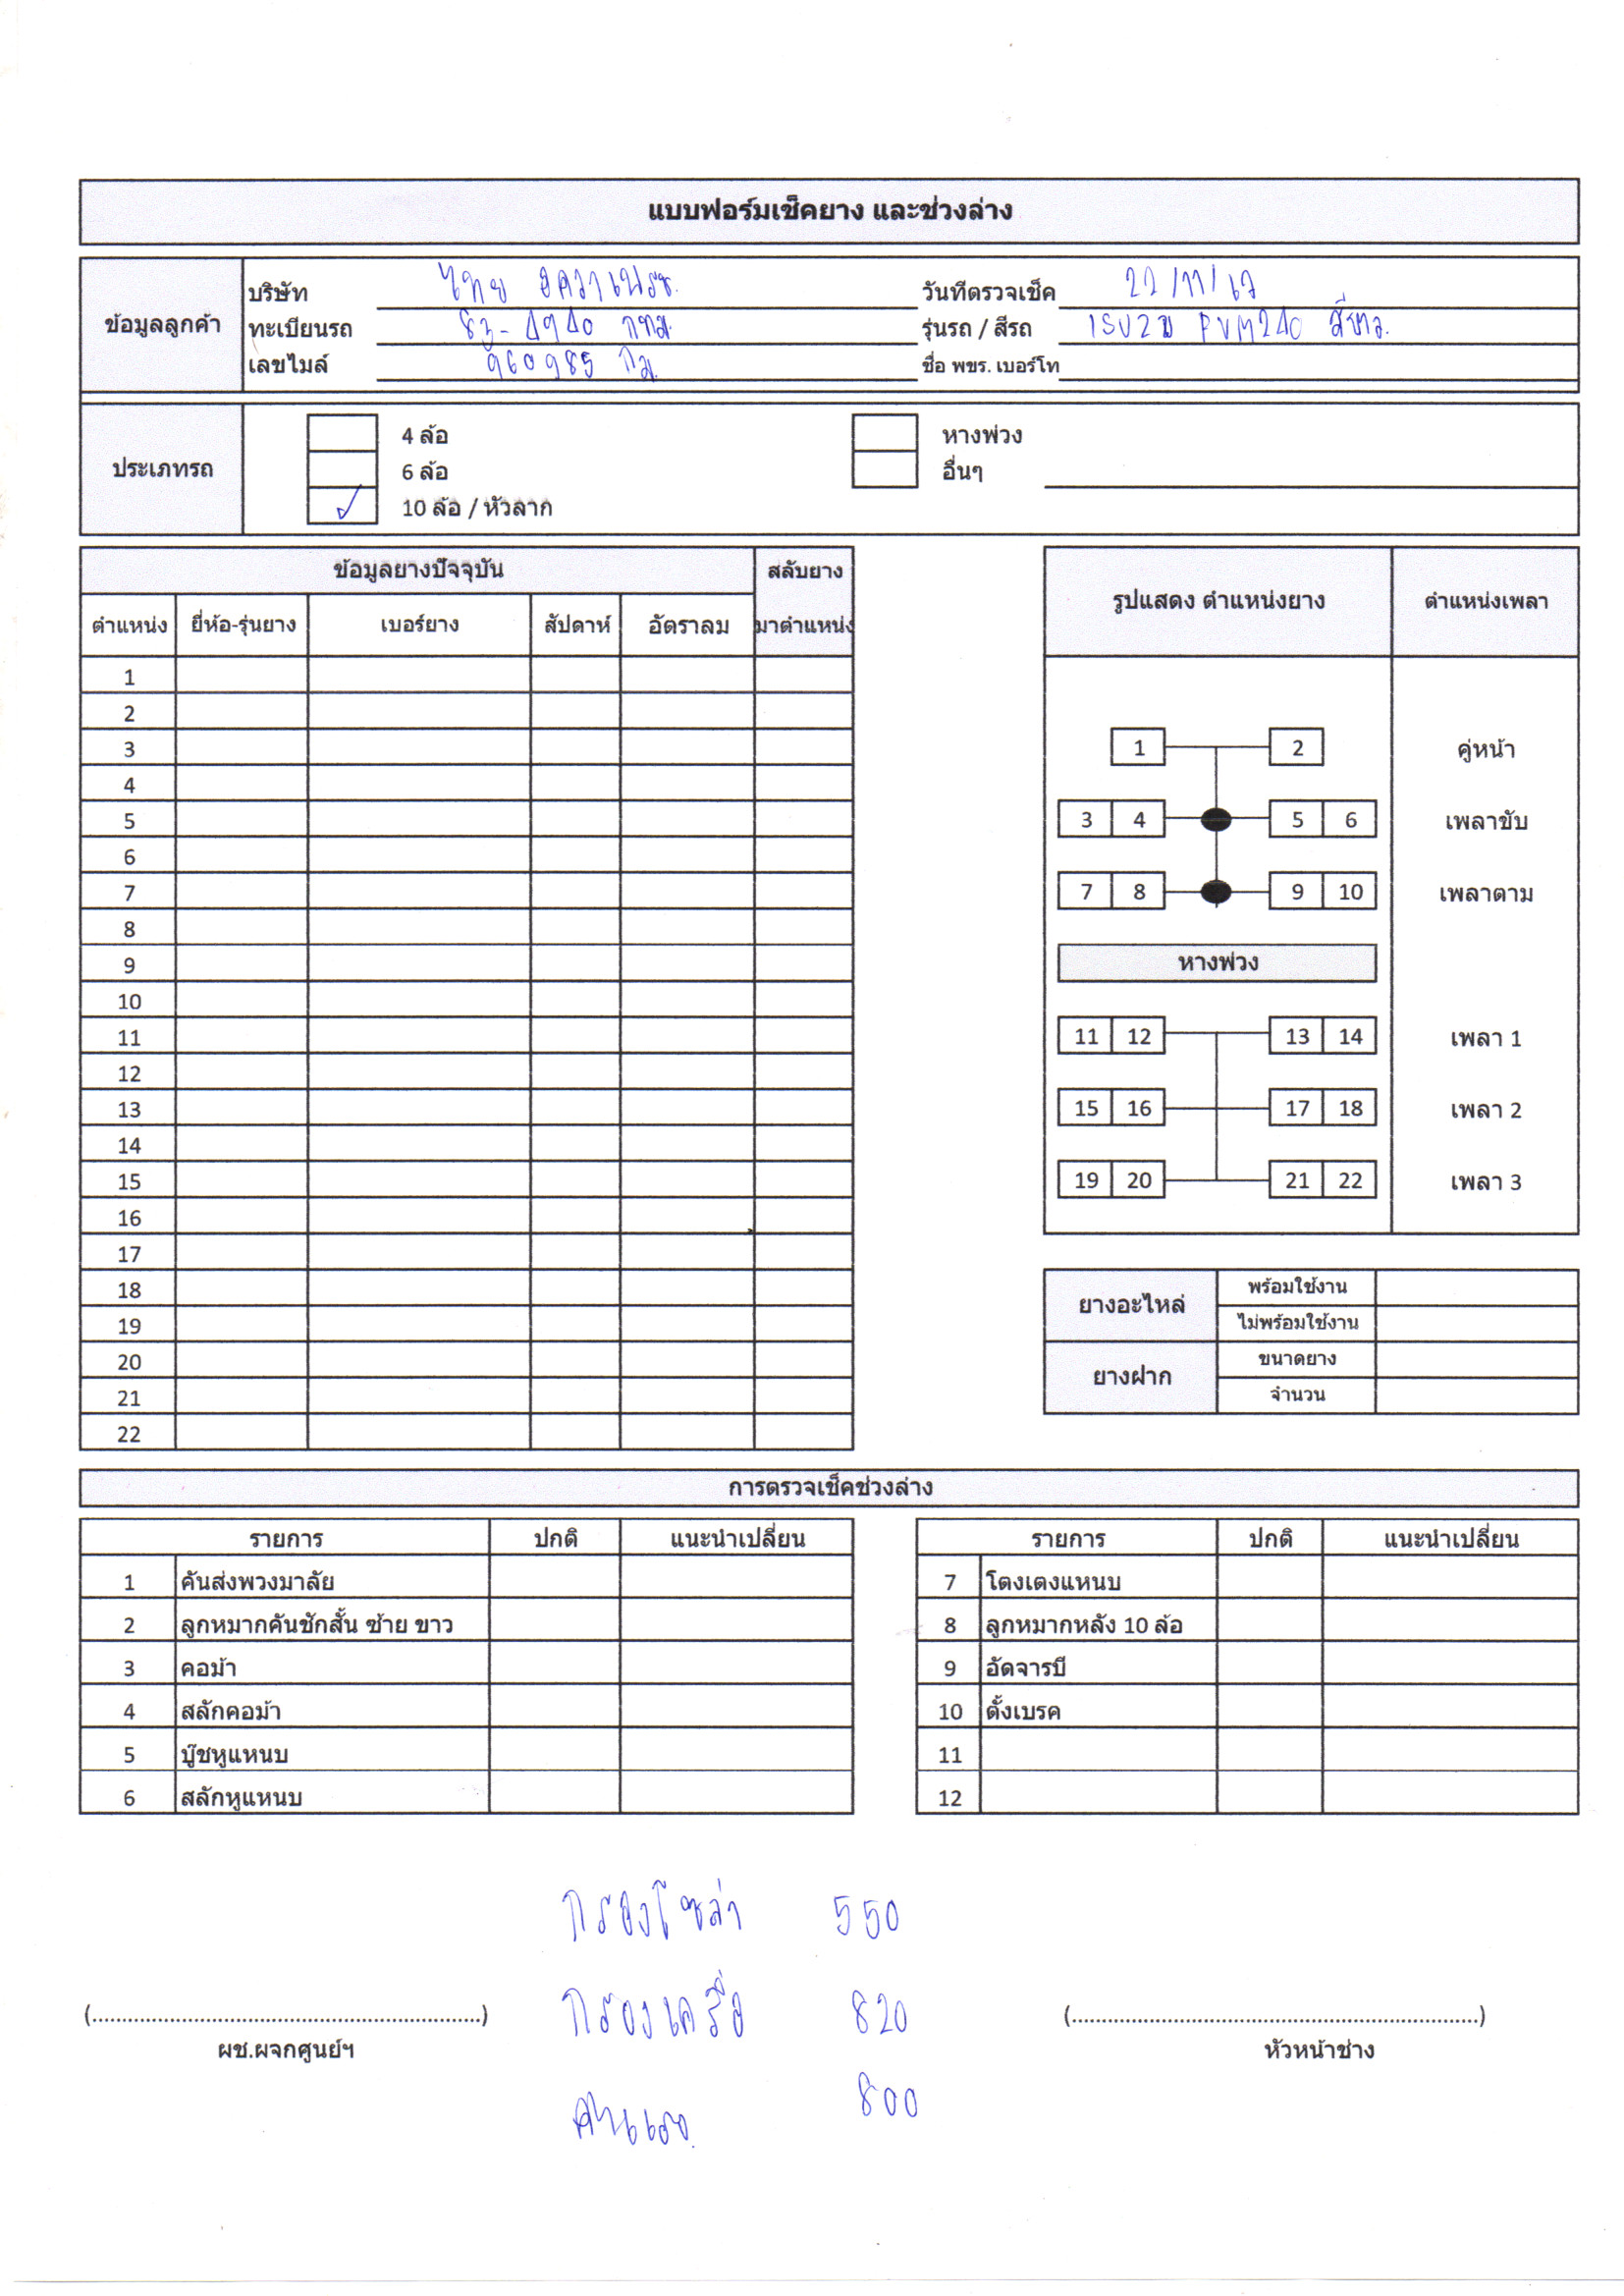 แบบฟอร์มเช็คยาง และช่วงล่าง
ข้อมูลลูกค้า
บริษัท ไทย
วันที่ตรวจเช็ค 22/11/67
ทะเบียนรถ 83-4940 กทม.
รุ่นรถ / สีรถ ISUZU 240 สีขาว.
เลขไมล์ 960985 กม.
ชื่อ พขร. เบอร์โท
ประเภทรถ
4 ล้อ
หางพ่วง
6 ล้อ
อื่นๆ
✓ 10 ล้อ / หัวลาก
ข้อมูลยางปัจจุบัน สลับยาง
ตำแหน่ง ยี่ห้อ-รุ่นยาง เบอร์ยาง สัปดาห์ อัตราลม มาตำแหน่ง
1
2
3
4
5
6
7
8
9
10
11
12
13
14
15
16
17
18
19
20
21
22
รูปแสดง ตำแหน่งยาง ตำแหน่งเพลา
1 2 คู่หน้า
3 4 5 6 เพลาขับ
7 8 9 10 เพลาตาม
หางพ่วง
11 12 13 14 เพลา 1
15 16 17 18 เพลา 2
19 20 21 22 เพลา 3
ยางอะไหล่ พร้อมใช้งาน
ไม่พร้อมใช้งาน
ยางฝาก ขนาดยาง
จำนวน
การตรวจเช็คช่วงล่าง
รายการ ปกติ แนะนำเปลี่ยน
1 คันส่งพวงมาลัย
2 ลูกหมากคันชักสั้น ซ้าย ขาว
3 คอม้า
4 สลักคอม้า
5 บู๊ชหูแหนบ
6 สลักหูแหนบ
รายการ ปกติ แนะนำเปลี่ยน
7 โตงเตงแหนบ
8 ลูกหมากหลัง 10 ล้อ
9 อัดจารบี
10 ตั้งเบรค
11
12
กรองโซล่า 550
กรองเครื่อ 820
ค่าแรง 800
(................................................................)
ผช.ผจกศูนย์ฯ
(....................................................................)
หัวหน้าช่าง